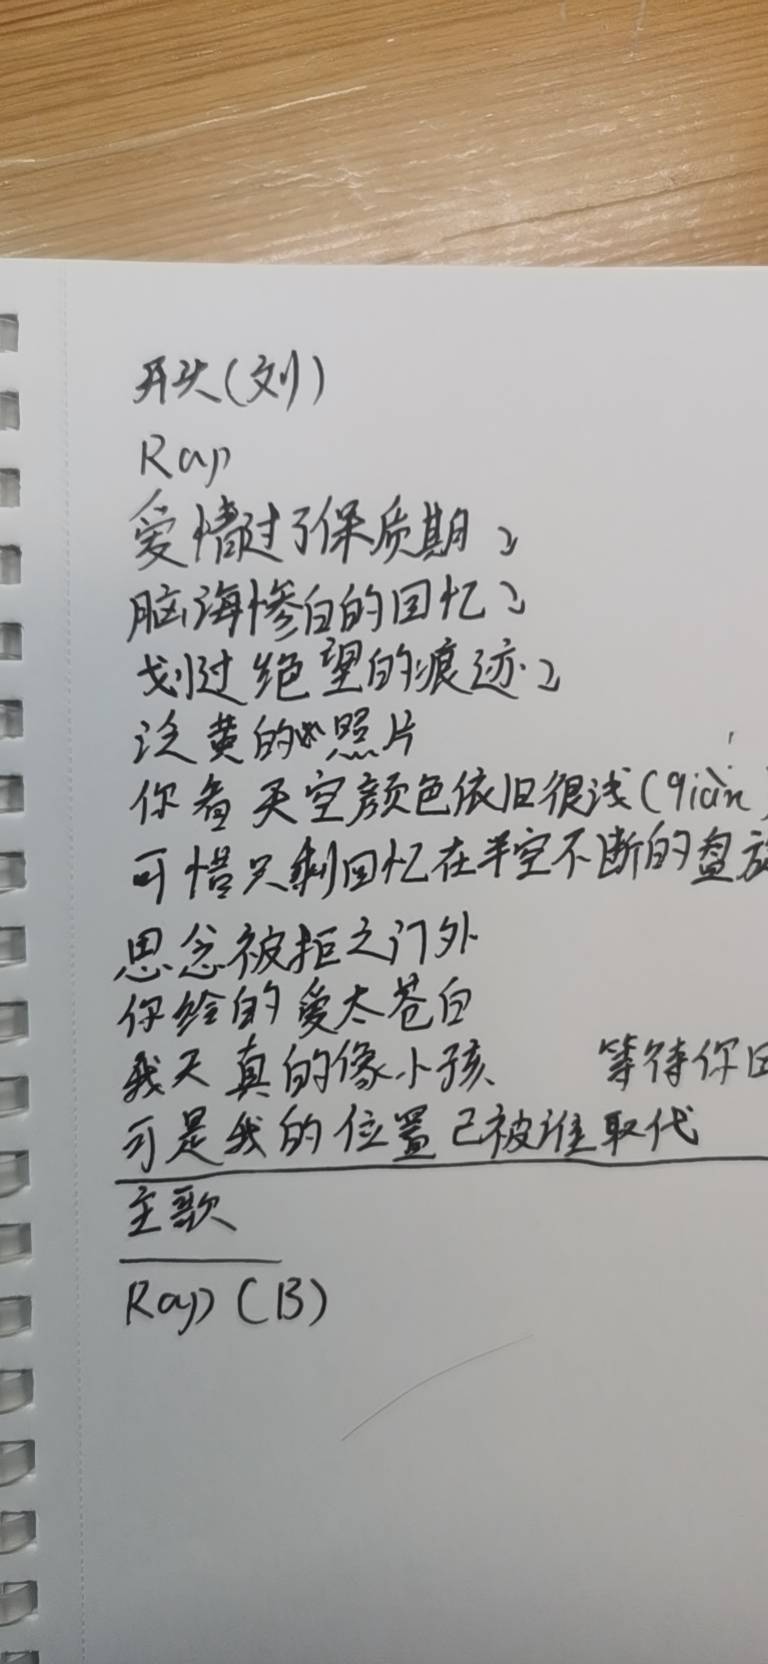 开头(刘)
Rap
爱情过了保质期
脑海惨白的回忆
划过绝望的痕迹
泛黄的照片
你看天空颜色依旧很浅(qiàn)
可惜只剩回忆在半空不断的盘旋
思念被拒之门外
你给的爱太苍白
我天真的像小孩 等待你回
可是我的位置已被谁取代
主歌
Rap(B)